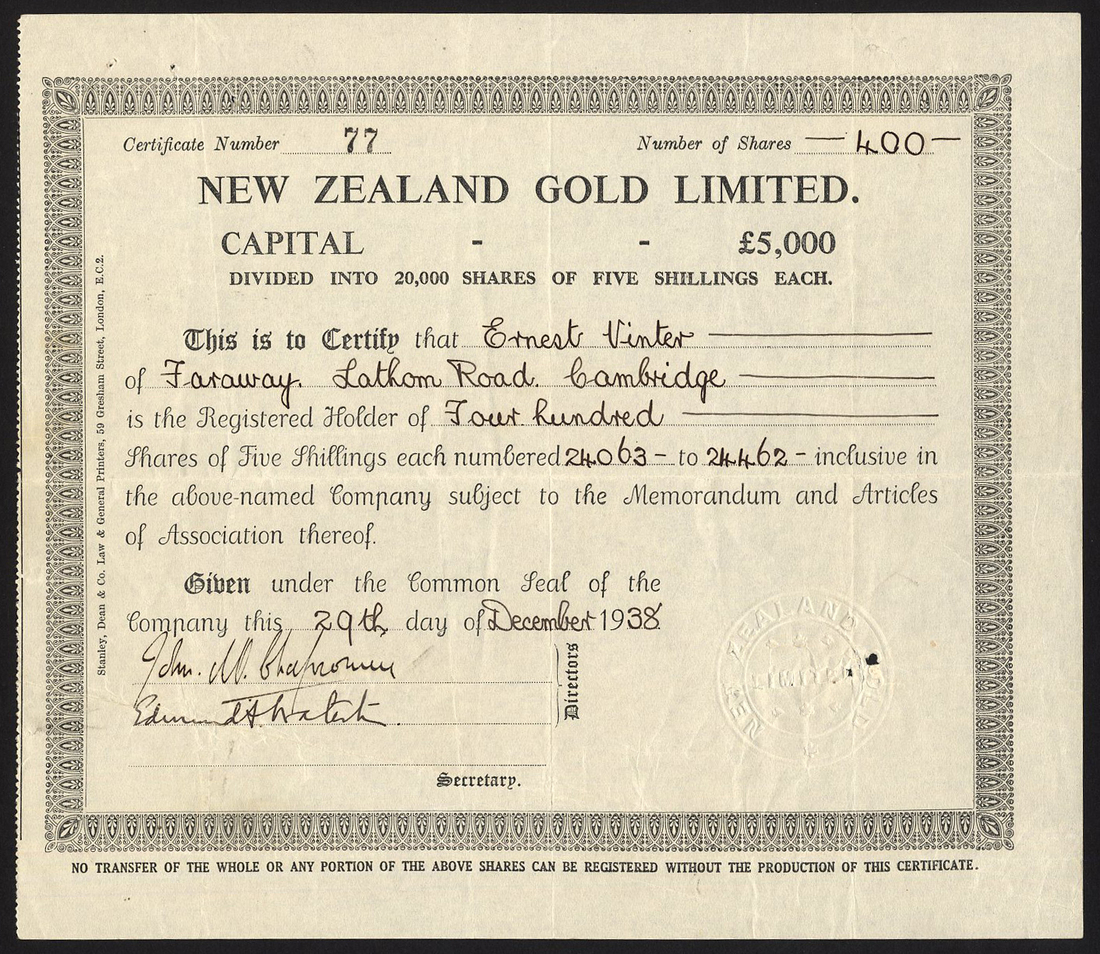 Certificate Number 77 Number of Shares — 400 —
NEW ZEALAND GOLD LIMITED.
CAPITAL - - £5,000
DIVIDED INTO 20,000 SHARES OF FIVE SHILLINGS EACH.
This is to Certify that Ernest Vinter
of Faraway. Lathom Road. Cambridge
is the Registered Holder of Four hundred
Shares of Five Shillings each numbered 24063 - to 24462 - inclusive in
the above-named Company subject to the Memorandum and Articles
of Association thereof.
Given under the Common Seal of the
Company this 29th day of December 1938
John
Edmund
Directors
Secretary.
NEW ZEALAND GOLD
LIMITED
Stanley, Dean & Co. Law & General Printers, 59 Gresham Street, London, E.C.2.
NO TRANSFER OF THE WHOLE OR ANY PORTION OF THE ABOVE SHARES CAN BE REGISTERED WITHOUT THE PRODUCTION OF THIS CERTIFICATE.